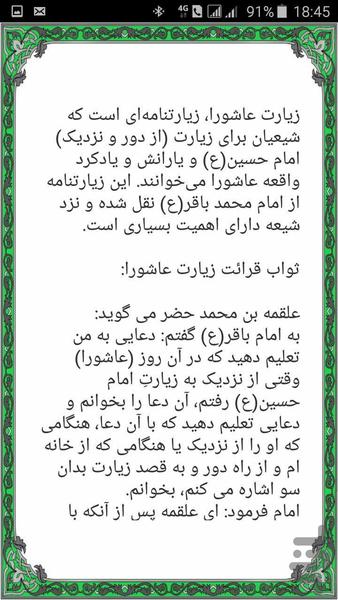 4G 91% 18:45
زیارت عاشورا، زیارتنامه‌ای است که
شیعیان برای زیارت (از دور و نزدیک)
امام حسین(ع) و یارانش و یادکرد
واقعه عاشورا می‌خوانند. این زیارتنامه
از امام محمد باقر(ع) نقل شده و نزد
شیعه دارای اهمیت بسیاری است.
ثواب قرائت زیارت عاشورا:
علقمه بن محمد حضر می گوید:
به امام باقر(ع) گفتم: دعایی به من
تعلیم دهید که در آن روز (عاشورا)
وقتی از نزدیک به زیارتِ امام
حسین(ع) رفتم، آن دعا را بخوانم و
دعایی تعلیم دهید که با آن دعا، هنگامی
که او را از نزدیک یا هنگامی که از خانه
ام و از راه دور و به قصد زیارت بدان
سو اشاره می کنم، بخوانم.
امام فرمود: ای علقمه پس از آنکه با